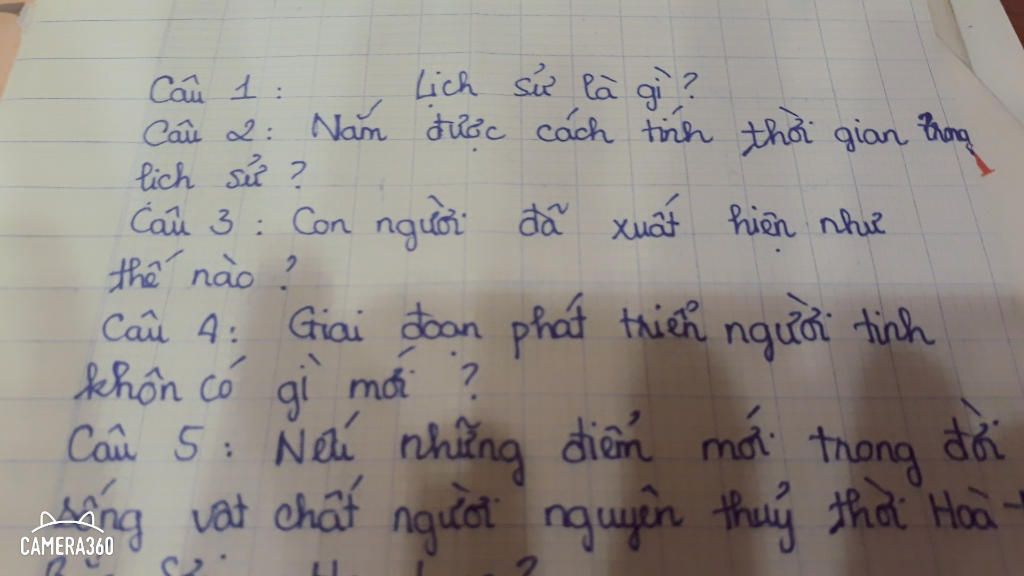 Câu 1: Lịch sử là gì?
Câu 2: Nắm được cách tính thời gian trong
lịch sử?
Câu 3: Con người đã xuất hiện như
thế nào?
Câu 4: Giai đoạn phát triển người tinh
khôn có gì mới?
Câu 5: Nêú những điểm mới trong đời
sống vật chất người nguyên thuỷ thời Hoà-
CAMERA360